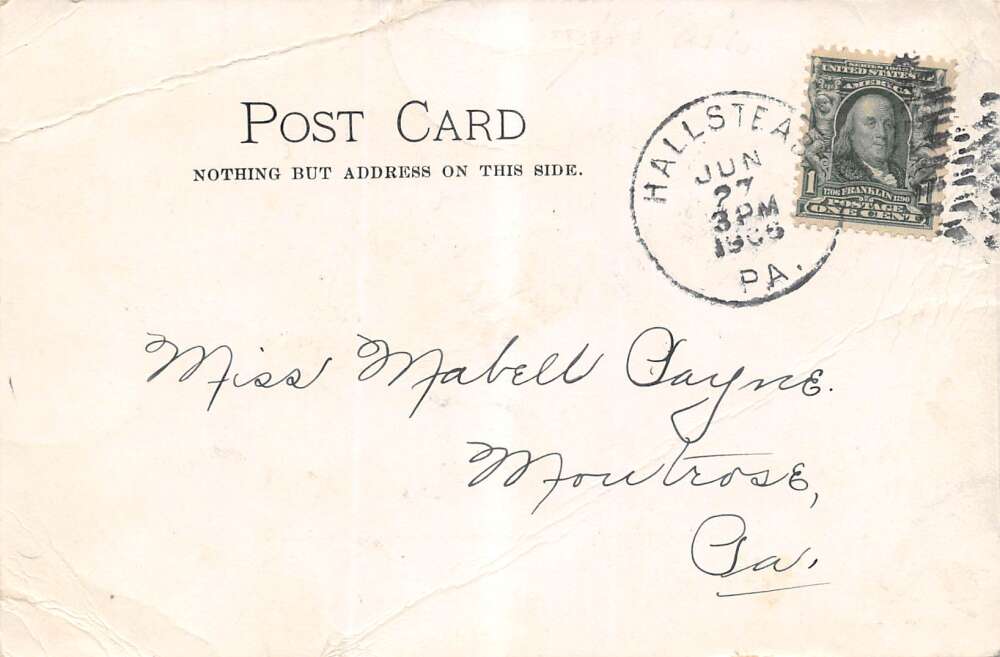 POST CARD
NOTHING BUT ADDRESS ON THIS SIDE.
HALLSTEAD
JUN
27
3 PM
PA.
SERIES 1902
UNITED STATES
AMERICA
1
1706 FRANKLIN 1790
POSTAGE
ONE CENT
Miss Mabell Payne.
Montrose,
Pa.